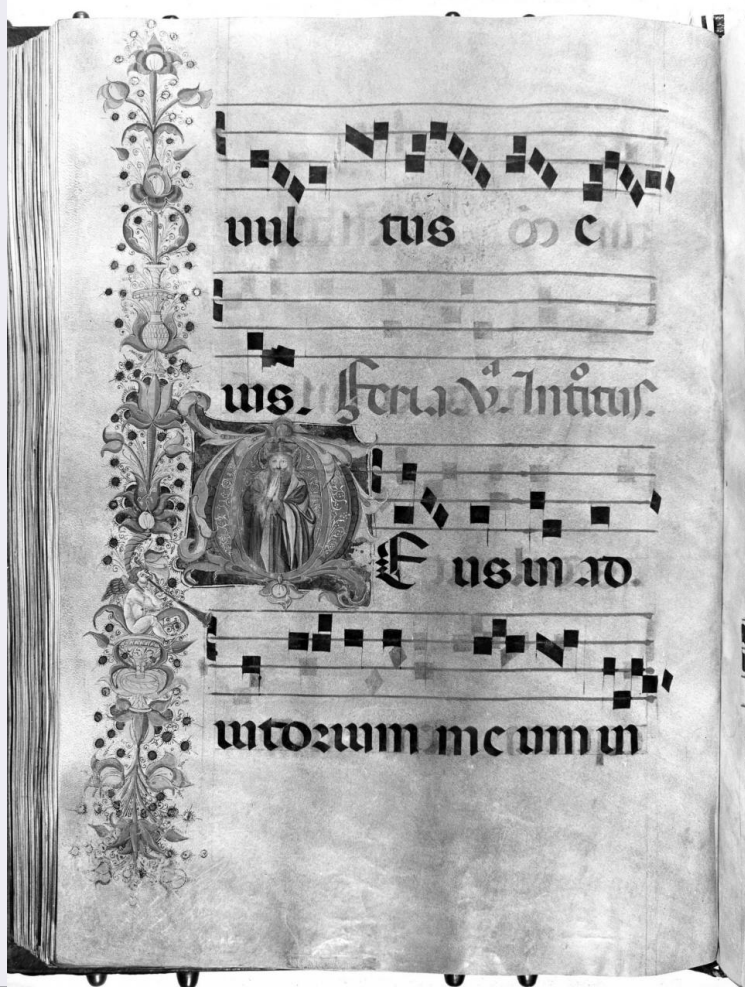 uul tus e
ius. Feria vª. Intºitus.
DEus in ad
iutorium meum in